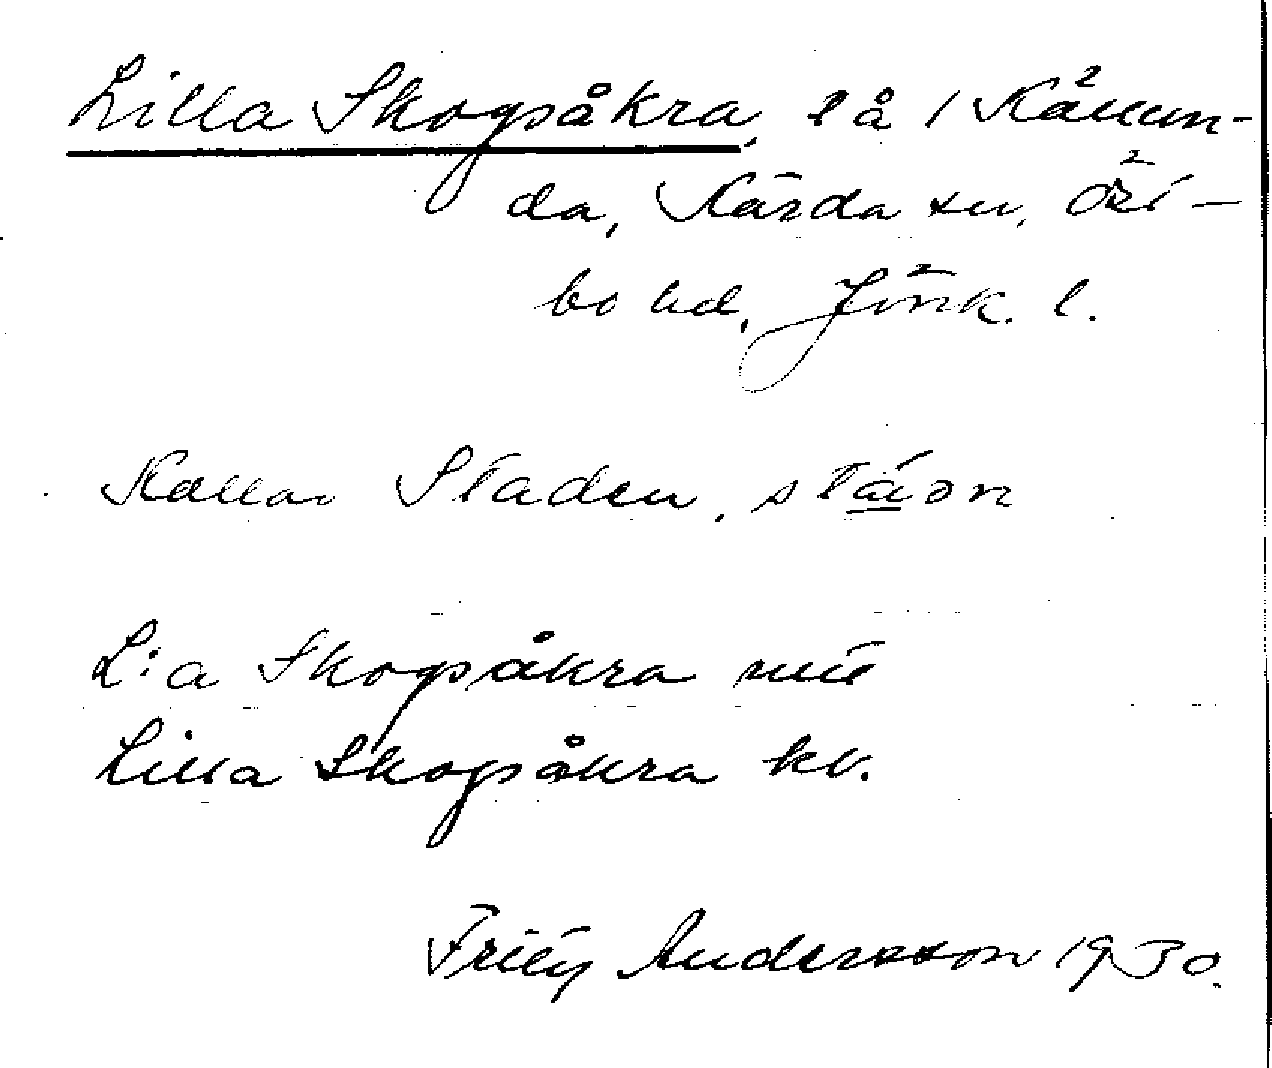 Lilla Skogsåkra, lå i Källun-
da, Kärda sn, Öst-
bo hd, Jönk. l.
Kallas Staden, st
L:a Skogsåkra
Lilla Skogsåkra kv.
Andersson 1930.